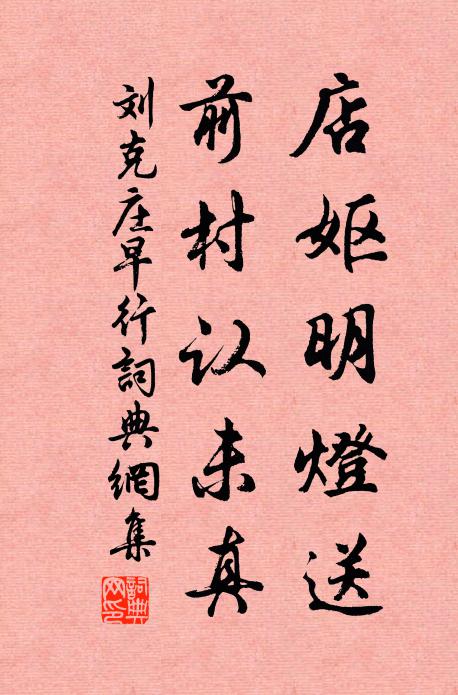 店妪明燈送
前村认未真
刘克庄早行詞典網集
詞典网印